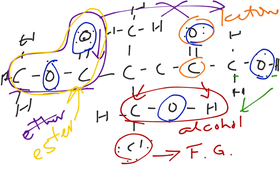 ketone
H H O: H
H C H
H C O C C C C C O H
H H
H C O H
alcohol
ether
ester
:Cl: → F.G.